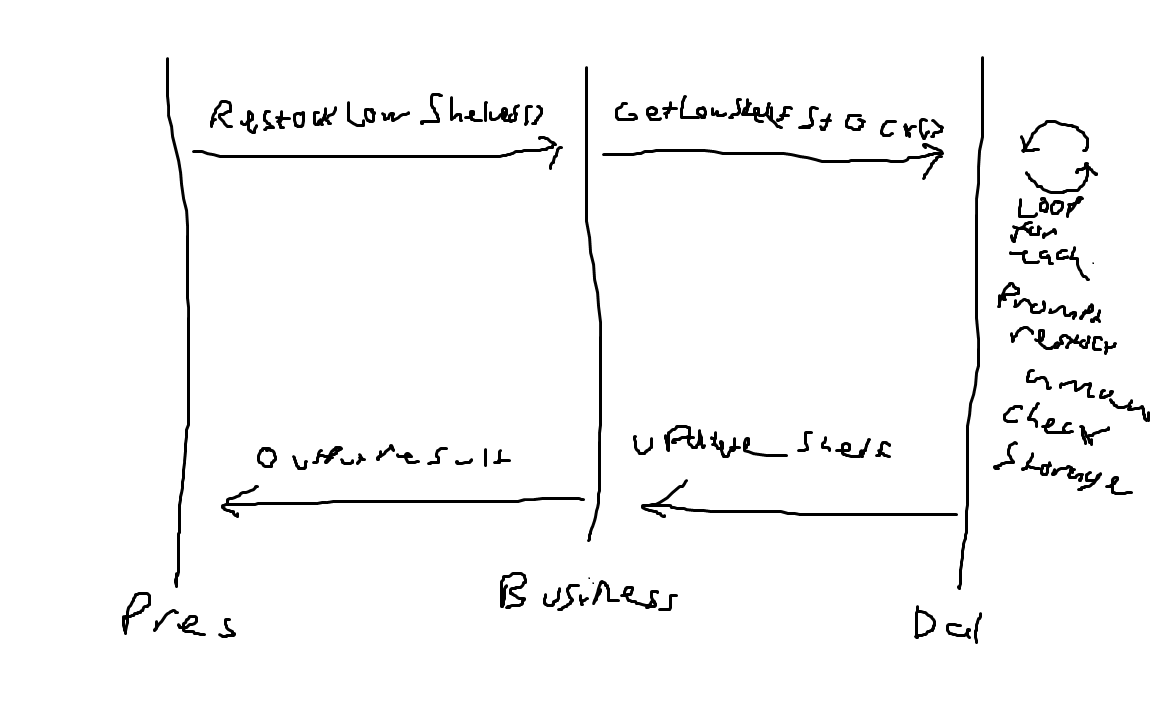 RestockLowShelves()
GetLowShelfStock()
Loop
for
each
Prompt
restock
amoun
check
storage
Output result
update_shelf
Pres
Business
Dal